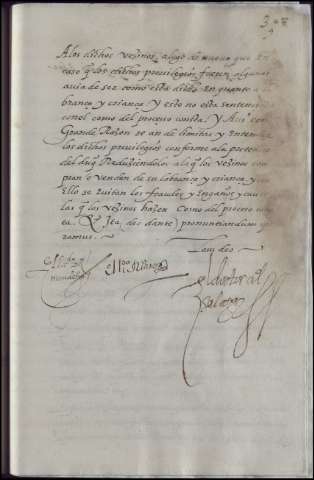 A los dichos vezinos alego de nuevo que en
caso q los dichos previllegios fuesen algunos
avia de ser como esta dicho en quanto a la
brança y criança y esto no esta sentenciado
con el como del proceso consta / Y Assi con
Grande Razon se an de limitar y entender
los dichos previllegios conforme a la pretension
del duq Reduziendolos a lo q los vezinos com
pran o venden de su labrança y criança y con
Ello se quitan los fraudes y engaños y cau
las q los vezinos hazen como del proceso cons
ta. Et Ita
pronunciandum
ramus.
Laus deo
el doctor